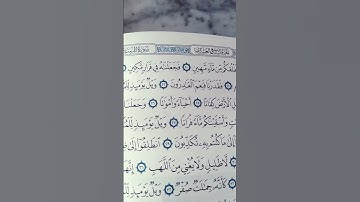 نَخْلُقكُّم مِّن مَّآءٍ مَّهِينٍ ۝ فَجَعَلْنَٰهُ فِي قَرَارٍ مَّكِينٍ
فَقَدَرْنَا فَنِعْمَ ٱلْقَٰدِرُونَ ۝ وَيْلٌ يَوْمَئِذٍ
ٱلْأَرْضَ كِفَاتًا ۝ أَحْيَآءً وَأَمْوَٰتًا ۝ وَجَعَلْنَا
وَأَسْقَيْنَٰكُم مَّآءً فُرَاتًا ۝ وَيْلٌ يَوْمَئِذٍ
إِلَىٰ مَا كُنتُم بِهِۦ تُكَذِّبُونَ ۝ ٱنطَلِقُوٓا۟ إِلَىٰ
لَّا ظَلِيلٍ وَلَا يُغْنِي مِنَ ٱللَّهَبِ ۝ إِنَّهَا
كَأَنَّهُۥ جِمَٰلَتٌ صُفْرٌ ۝ وَيْلٌ يَوْمَئِذٍ